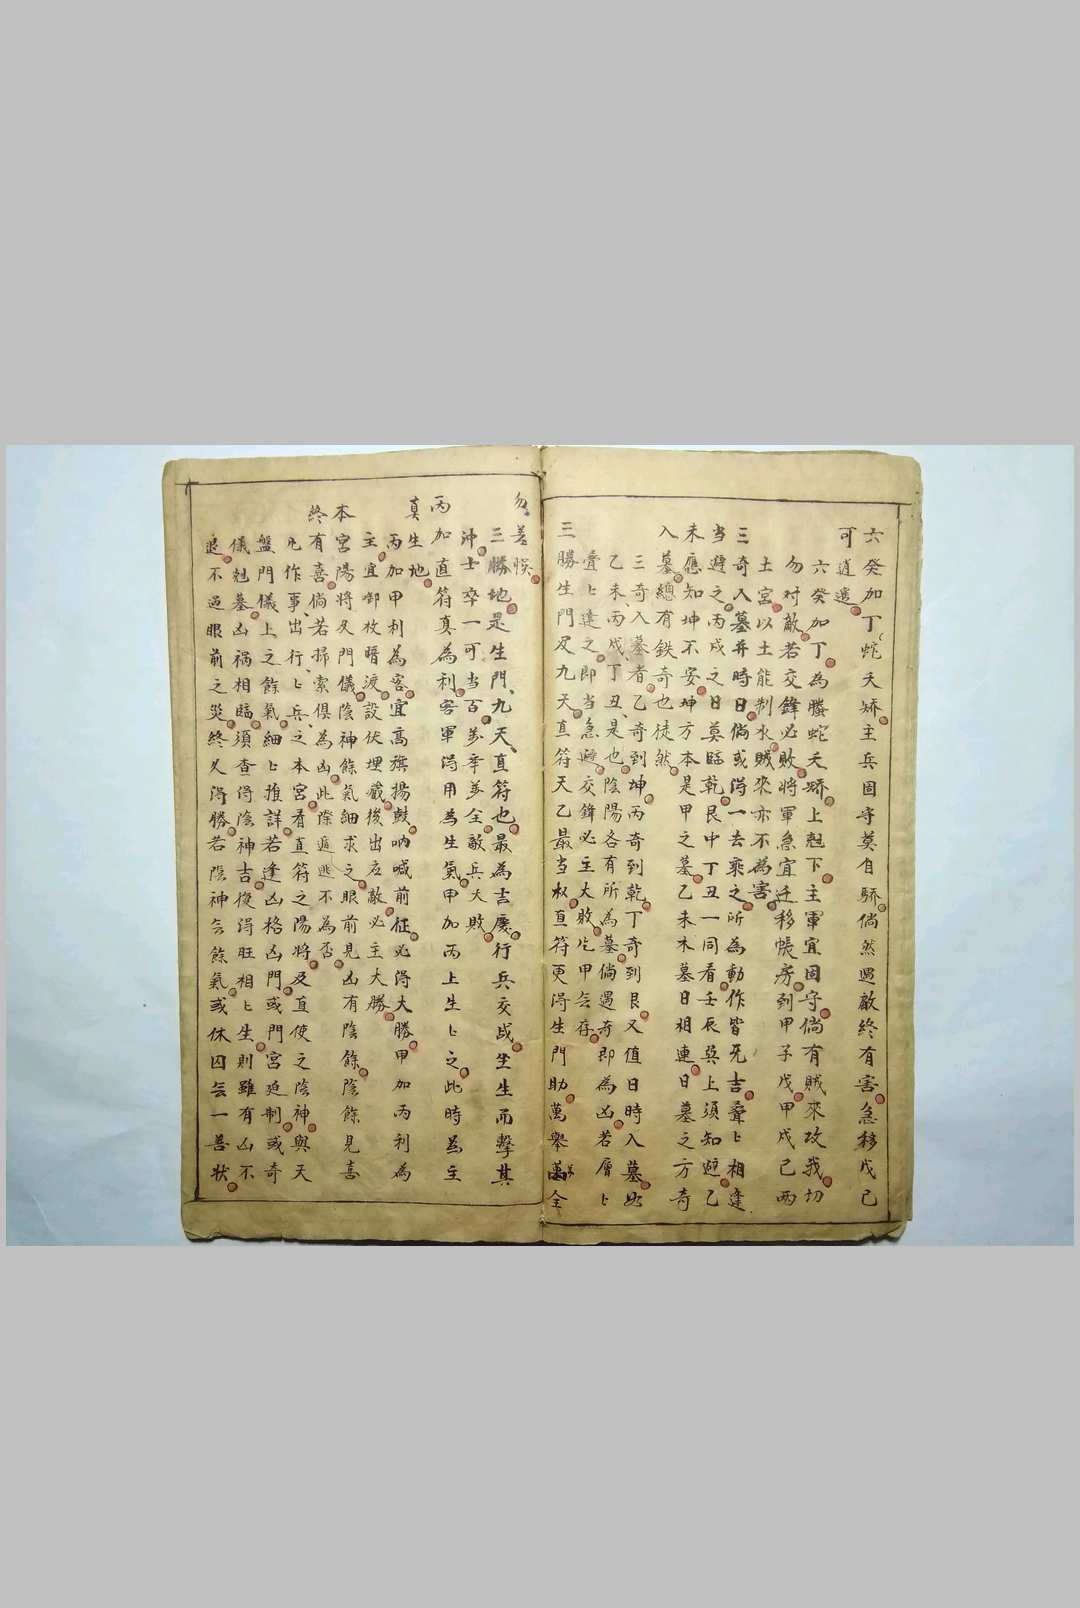 六癸加丁蛇夭矯主兵固守莫自驕倘然遇敵終有害急移戊己
可逍遥
六癸加丁為螣蛇夭驕上尅下主軍宜固守倘有賊來攻我切
勿对敵若交鋒必敗将軍急宜迁移帳房到甲子戊甲戌己两
土宮以土能制水賊來亦不為害
三奇入墓并時日倘或淂一去乘之所為動作皆旡吉疊匕相逢
当避之丙戌之日莫臨乾艮中丁丑一同看壬辰巽上須知避乙
未應知坤不安坤方本是甲之墓乙未木墓日相連日墓之方奇
入墓總有鉄奇也徒然
三奇入墓者乙奇到坤丙奇到乾丁奇到艮又值日時入墓如
乙未丙戌丁丑是也陰陽各有所為墓倘遇奇即為凶若層匕
疊匕逢之即当急避交鋒必主大敗片甲无存
三勝生門及九天直符天乙最当权直符更淂生門助萬舉萬全
勿差悞
三勝地是生門九天直符也最為吉慶行兵交战坐生而擊其
沖士卒一可当百萬年萬全敵兵大敗
丙加直符真為利客軍淂用為生氣甲加丙上生匕之此時为主
真生地
丙加甲利為客宜高旗揚鼓吶喊前征必淂大勝甲加丙利為
主宜卸枚暗渡設伏埋藏後出应敵必主大勝
本宮陽将及門儀陰神餘氣細求之眼前見凶有陰餘陰餘見喜
終有喜倘若掃索俱為凶此際遁逃不為否
凡作事出行匕兵之本宮看直符之陽将及直使之陰神與天
盤門儀上之餘氣細匕推詳若逢凶格凶門或門宮廹制或奇
儀尅墓凶祸相臨須查淂陰神吉復淂旺相匕生則雖有凶不
過不過眼前之災終久淂勝若陰神无餘氣或休囚无一善狀